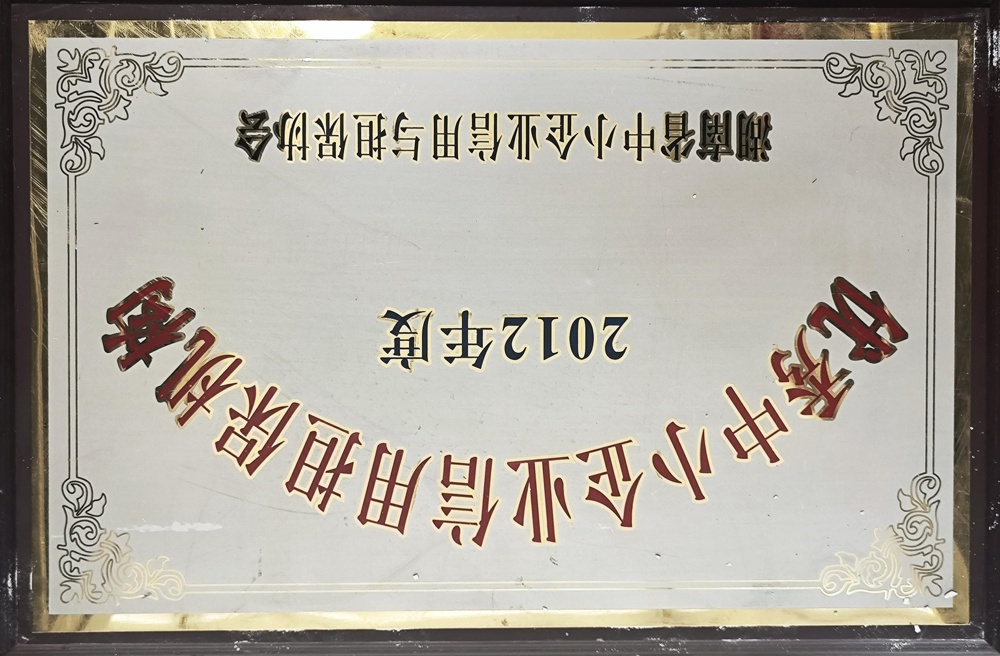 优秀中小企业信用担保机构
2012年度
湖南省中小企业信用与担保协会